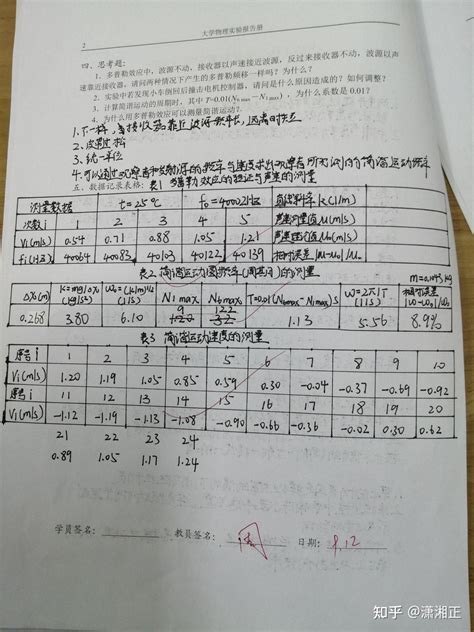 大学物理实验报告册
2
四、思考题:
1. 多普勒效应中,波源不动,接收器以声速接近波源,反过来接收器不动,波源以声
速靠近接收器,请问两种情况下产生的多普勒频移一样吗?为什么?
2. 实验中若发现小车倒回后撞击电机控制器,请问是什么原因造成的?如何调整?
3. 计算简谐运动的周期时,其中 T=0.01(N₆max−N₁max),为什么系数是 0.01?
4. 为什么用多普勒效应可以测量简谐运动?
1.不一样,
2.皮带松
3.统一单位
4.可以通过观察者和
五、数据记录表格:表1 多普勒效应的验证与声速的测量
测量数据 t=25℃ f₀=40002Hz 直线斜率K(1/m)
次数i 1 2 3 4 5 声速测量值u(m/s)
Vi(m/s) 0.54 0.71 0.88 1.05 1.21 声速理论值u₀(m/s)
fi(Hz) 40064 40083 40103 40122 40139
表2 简谐运动圆频率(周期)的测量
m=0.1
Δx(m) K=mg/Δx (kg/s²) ω₀=(k/m)^½ (1/s) N₁max N₆max T=0.01(N₆max−N₁max)s ω=2π/T (1/s) 相对误差
0.268 3.80 6.10 9 122 1.13 5.56 8.9%
表3 简谐运动速度的测量
序号i 1 2 3 4 5 6 7 8 9 10
Vi(m/s) 1.20 1.19 1.05 0.85 0.59 0.30 -0.04 -0.37 -0.69 -0.92
序号i 11 12 13 14 15 16 17 18 19 20
Vi(m/s) -1.12 -1.19 -1.13 -1.08 -0.90 -0.66 -0.36 -0.02 0.30 0.62
21 22 23 24
0.89 1.05 1.17 1.24
学员签名: 教员签名: 日期: 8.12
知乎 @潇湘正